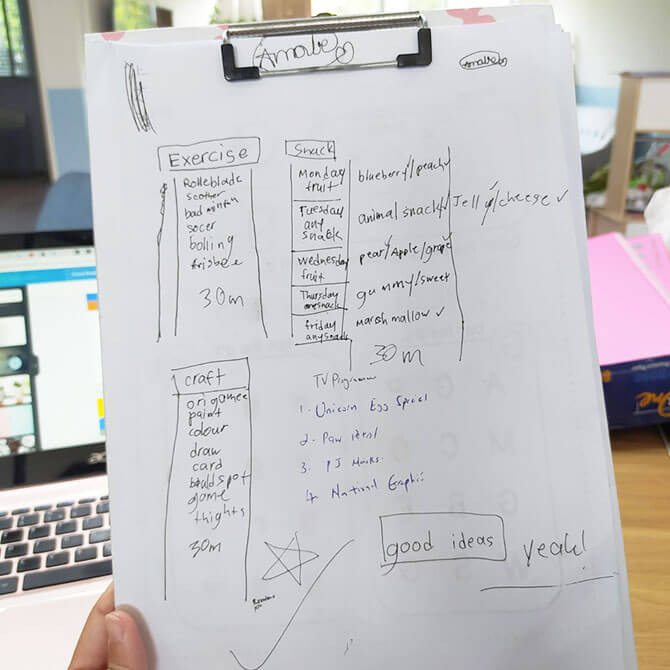 Amabel
Amabel
Exercise
Rolleblade
scother
bad minton
socer
bolling
frisbele
30m
Snack
Monday fruit blueberry/peach ✓
Tuesday any snack animal snack/Jelly/cheese ✓
Wednesday fruit pear/Apple/grape
Thursday gummy/sweet
friday any snack Marsh mallow ✓
30m
craft
origamee
paint
colour
draw
card
game
thights
30m
TV Programm
1. Unicorn Egg Speciel
2. Paw Petrol
3. PJ Masks
4. National Graphic
good ideas yeah!
acer